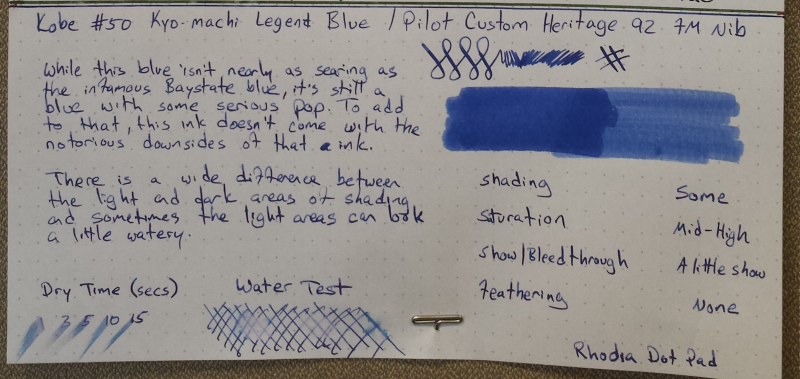 Kobe #50 Kyo-machi Legend Blue / Pilot Custom Heritage 92 FM Nib
While this blue isn't nearly as searing as
the infamous Baystate blue, it's still a
blue with some serious pop. To add
to that, this ink doesn't come with the
notorious downsides of that ink.
There is a wide difference between
the light and dark areas of shading
and sometimes the light areas can look
a little watery.
shading Some
Sturation Mid-High
Show/Bleedthrough A little show
Feathering None
Dry Time (secs)
3 5 10 15
Water Test
Rhodia Dot Pad